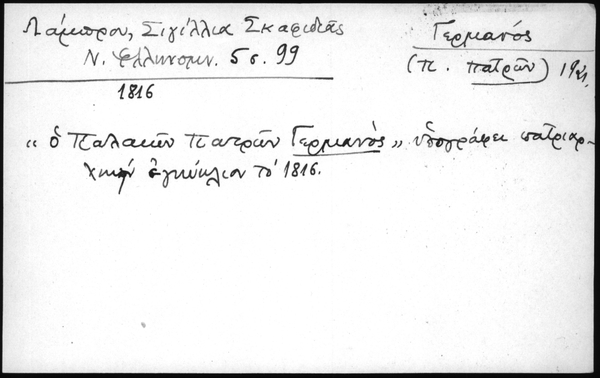 Λάμπρου, Σιγίλλια Σκαφιδιᾶς
Ν. Ἑλληνομν. 5 σ. 99
Γερμανός
(π. Πατρῶν)
1816
« ὁ Παλαιῶν Πατρῶν Γερμανὸς » ὑπογράφει πατριαρ-
χικὴν ἐγκύκλιον τὸ 1816.